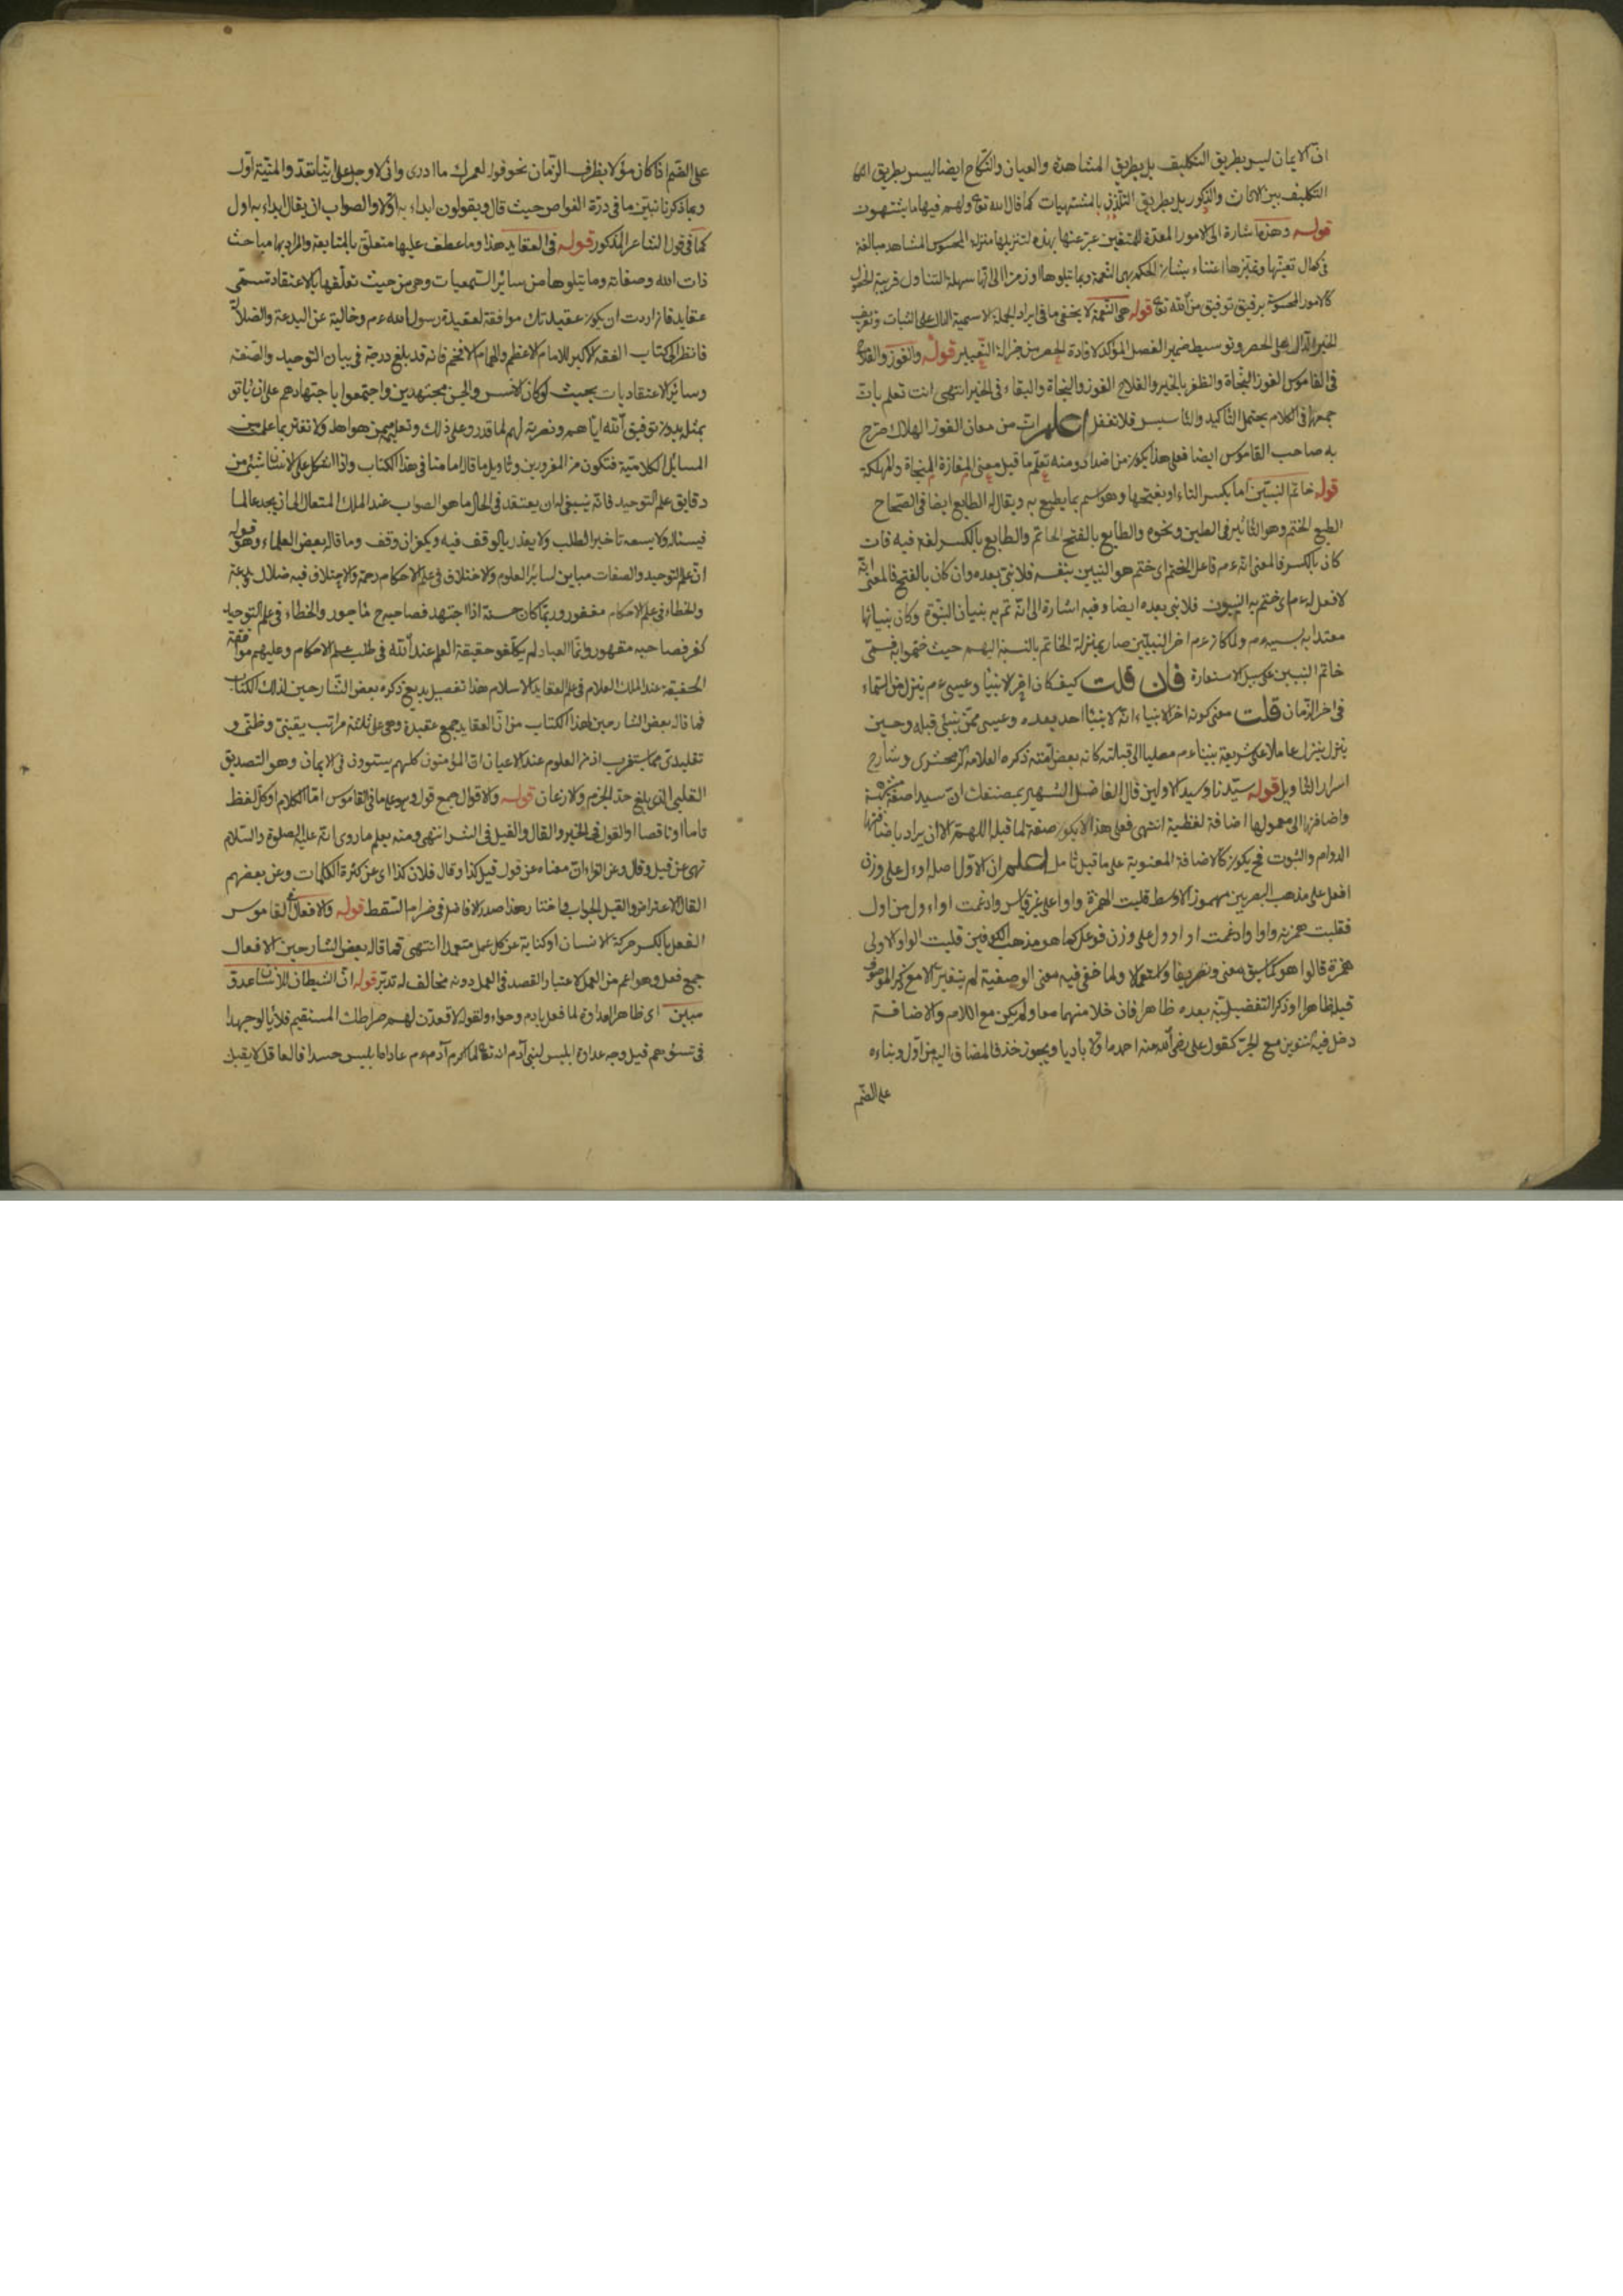 ان الايمان ليس بطريق التكليف بل بطريق المشاهدة والعيان والنكاح ايضا ليس بطريق
التكليف بين الاناث والذكور بل بطريق التلذذ بالمشتهيات كما قال الله تع ولهم فيها ما يشتهون
قوله وهذه اشارة الى الامور المعدة للمتقين عبر عنها بهذه لتنزيلها منزلة المحسوس المشاهد مبالغة
في كمال تعينها وتميزها اعتناء بشان الحكم بهى النعمة وبما يتلوها او رمزا الى انها سهلة التناول قريبة الحصول
كالامور المحسوسة برفيق توفيق من الله تع قوله هى النعمة لا يخفى ما فى ايراد الجملة الاسمية الدال على الثبات وتعريف
الخبر الدال على الحصر وتوسيط ضمير الفصل المؤكد لافادة الحصر من جزالة التعبير قوله والفوز والفلاح
فى القاموس الفوز النجاة والظفر بالخير والفلاح الفوز والنجاة والبقاء فى الخير انتهى انت تعلم بان
جمعها فى الكلام يحتمل التاكيد والتاسيس فلا تغفل اعلم ان من معان الفوز الهلاك صرح
به صاحب القاموس ايضا فعلى هذا يكون من اضداد ومنه تعلم ما قيل معنى المفازة المنجاة والمهلكة
قوله خاتم النبيين اما بكسر التاء او بفتحها وهو اسم بما يطبع به ويقال له الطابع ايضا فى الصحاح
الطبع الختم وهو التاثير فى الطين ونحوه والطابع بالفتح الخاتم والطابع بالكسر لغة فيه فان
كان بالكسر فالمعنى انه عم فاعل الختم اى ختم هو النبيين بنفسه فلا نبى بعده وان كان بالفتح فالمعنى انه
لا فعل له عم اى ختم به النبيون فلا نبى بعده ايضا وفيه اشارة الى انه تم به بنيان النبوة وكان بنيانها
معتدا به بسببه عم ولما كان عم اخر النبيين صار بمنزلة الخاتم بالنسبة اليهم حيث ختموا به فسمى
خاتم النبيين على سبيل الاستعارة فان قلت كيف كان اخر الانبيا وعيسى عم ينزل من السماء
فى اخر الزمان قلت معنى كونه اخر الانبياء انه لا ينبئا احد بعده وعيسى ممن نبئ قبله وحين
ينزل ينزل عاملا على شريعة نبينا عم مصليا الى قبلته كانه بعض امته ذكره العلامة الزمخشرى وشارح
اسرار التاويل قوله سيدنا وسيد الاولين قال الفاضل الشهير بمصنفك ان سيدا صفة مشبهة
واضافتها الى معمولها اضافة لفظية انتهى فعلى هذا لا يكون صفة لما قبله اللهم الا ان يراد باضافتها
الدوام والثبوت فح يكون كالاضافة المعنوية على ما قيل تامل اعلم ان الاول اصله اوءل على وزن
افعل على مذهب البصريين مهموز الاوسط قلبت الهمزة واوا على غير قياس وادغمت او اءول من اول
فقلبت همزته واوا وادغمت او اوول على وزن فوعل كما هو مذهب الكوفيين قلبت الواو الاولى
همزة قالوا هو كاسبق معنى وتصريفا واستعمالا ولما خفى فيه معنى الوصفية لم يتغير الا مع ذكر الموصوف
قبله ظاهرا او ذكر التفضيلية بعده ظاهرا فان خلا منهما معا ولم يكن مع اللام والاضافة
دخل فيه التنوين مع الجر كقول على رضى الله عنه احمده اولا باديا ويجوز حذف المضاف اليه من اول وبناءه
على الضم
على الضم اذا كان مؤلا بظرف الزمان نحو قوله لعمرك ما ادرى وانى لاوجل على اينا تغدو المنية اول
وبما ذكرنا تبين ما فى درة الغواص حيث قال ويقولون ابداء به اولا والصواب ان يقال ابداء به اول
كما فى قول الشاعر المذكور قوله فى العقايد هذا وما عطف عليها متعلق بالمتابعة والمراد بها مباحث
ذات الله وصفاته وما يتلوها من سائر السمعيات وهى من حيث تعلقها بالاعتقاد تسمى
عقايد فان اردت ان يكون عقيدتك موافقة لعقيدة رسول الله عم وخالية عن البدعة والضلالة
فانظر الى كتاب الفقه الاكبر للامام الاعظم والهمام الافخم فانه قد بلغ درجة فى بيان التوحيد والصفة
وسائر الاعتقاديات بحيث لو كان الانس والجن مجتهدين واجتمعوا باجتهادهم على ان ياتو
بمثله بدون توفيق الله اياهم ونصرته لهم لما قدروا على ذلك وتعليم من هو اهله ولا تغتر بما علمت من
المسايل الكلامية فتكون من المغرورين وتاويل ما قال امامنا فى هذا الكتاب واذا اشكل على الانسان شئ من
دقايق علم التوحيد فانه ينبغى له ان يعتقد فى الحال ما هو الصواب عند الملك المتعال الى ان يجد عالما
فيسئاله ولا يسعه تاخير الطلب ولا يعذر بالوقف فيه ويكفر ان وقف وما قاله بعض العلماء وهو قوله
ان علم التوحيد والصفات مباين لسائر العلوم والاختلاف فى علم الاحكام رحمة والاختلاف فيه ضلال وبدعة
والخطاء فى علم الاحكام مغفور وربما كان حسنة اذا اجتهد فصاحبه ماجور والخطاء فى علم التوحيد
كفر فصاحبه مقهور وانما العباد لم يكلفو حقيقة العلم عند الله فى طلب علم الاحكام وعليهم موافقة
الحقيقة عند الملك العلام فى علم العقايد الاسلام هذا تفصيل بديع ذكره بعض الشارحين لذلك الكتاب
فما قاله بعض الشارحين لهذا الكتاب من ان العقايد جمع عقيدة وهى على ثلثة مراتب يقينى وظنى و
تقليدى مما يستغرب اذ من العلوم عند الاعيان ان المؤمنون كلهم يستوون فى الايمان وهو التصديق
القلبى الذى بلغ حد الجزم والاذعان قوله والاقوال جمع قول وهو على ما فى القاموس اما الكلام او كل لفظ
تاما او ناقصا او القول فى الخير والقال والقيل فى الشر انتهى ومنه يعلم ما روى انه عليه الصلوة والسلام
نهى عن قيل وقال وعن التواءان معناه عن قول قيل كذا وقال فلان كذا اى عن كثرة الكلمات وعن بعضهم
القال الاعتراض والقيل الجواب واختار هذا صدر الافاضل فى ضرام السقط قوله والافعال فى القاموس
الفعل بالكسر حركة الانسان او كناية عن كل عمل متعمد انتهى فما قاله بعض الشارحين الافعال
جمع فعل وهو اعم من العمل لاعتبار القصد فى العمل دونه مخالف له تدبر قوله ان الشيطان للانسان عدو
مبين اى ظاهر العداوة لما فعل بادم وحواء ولقوله لاقعدن لهم صراطك المستقيم فلا يالو جهدا
فى تسويلهم قيل وجه عداوة ابليس لبنى آدم انه تع لما اكرم آدم عم عاداه ابليس حسدا فالعاقل لا يقبل